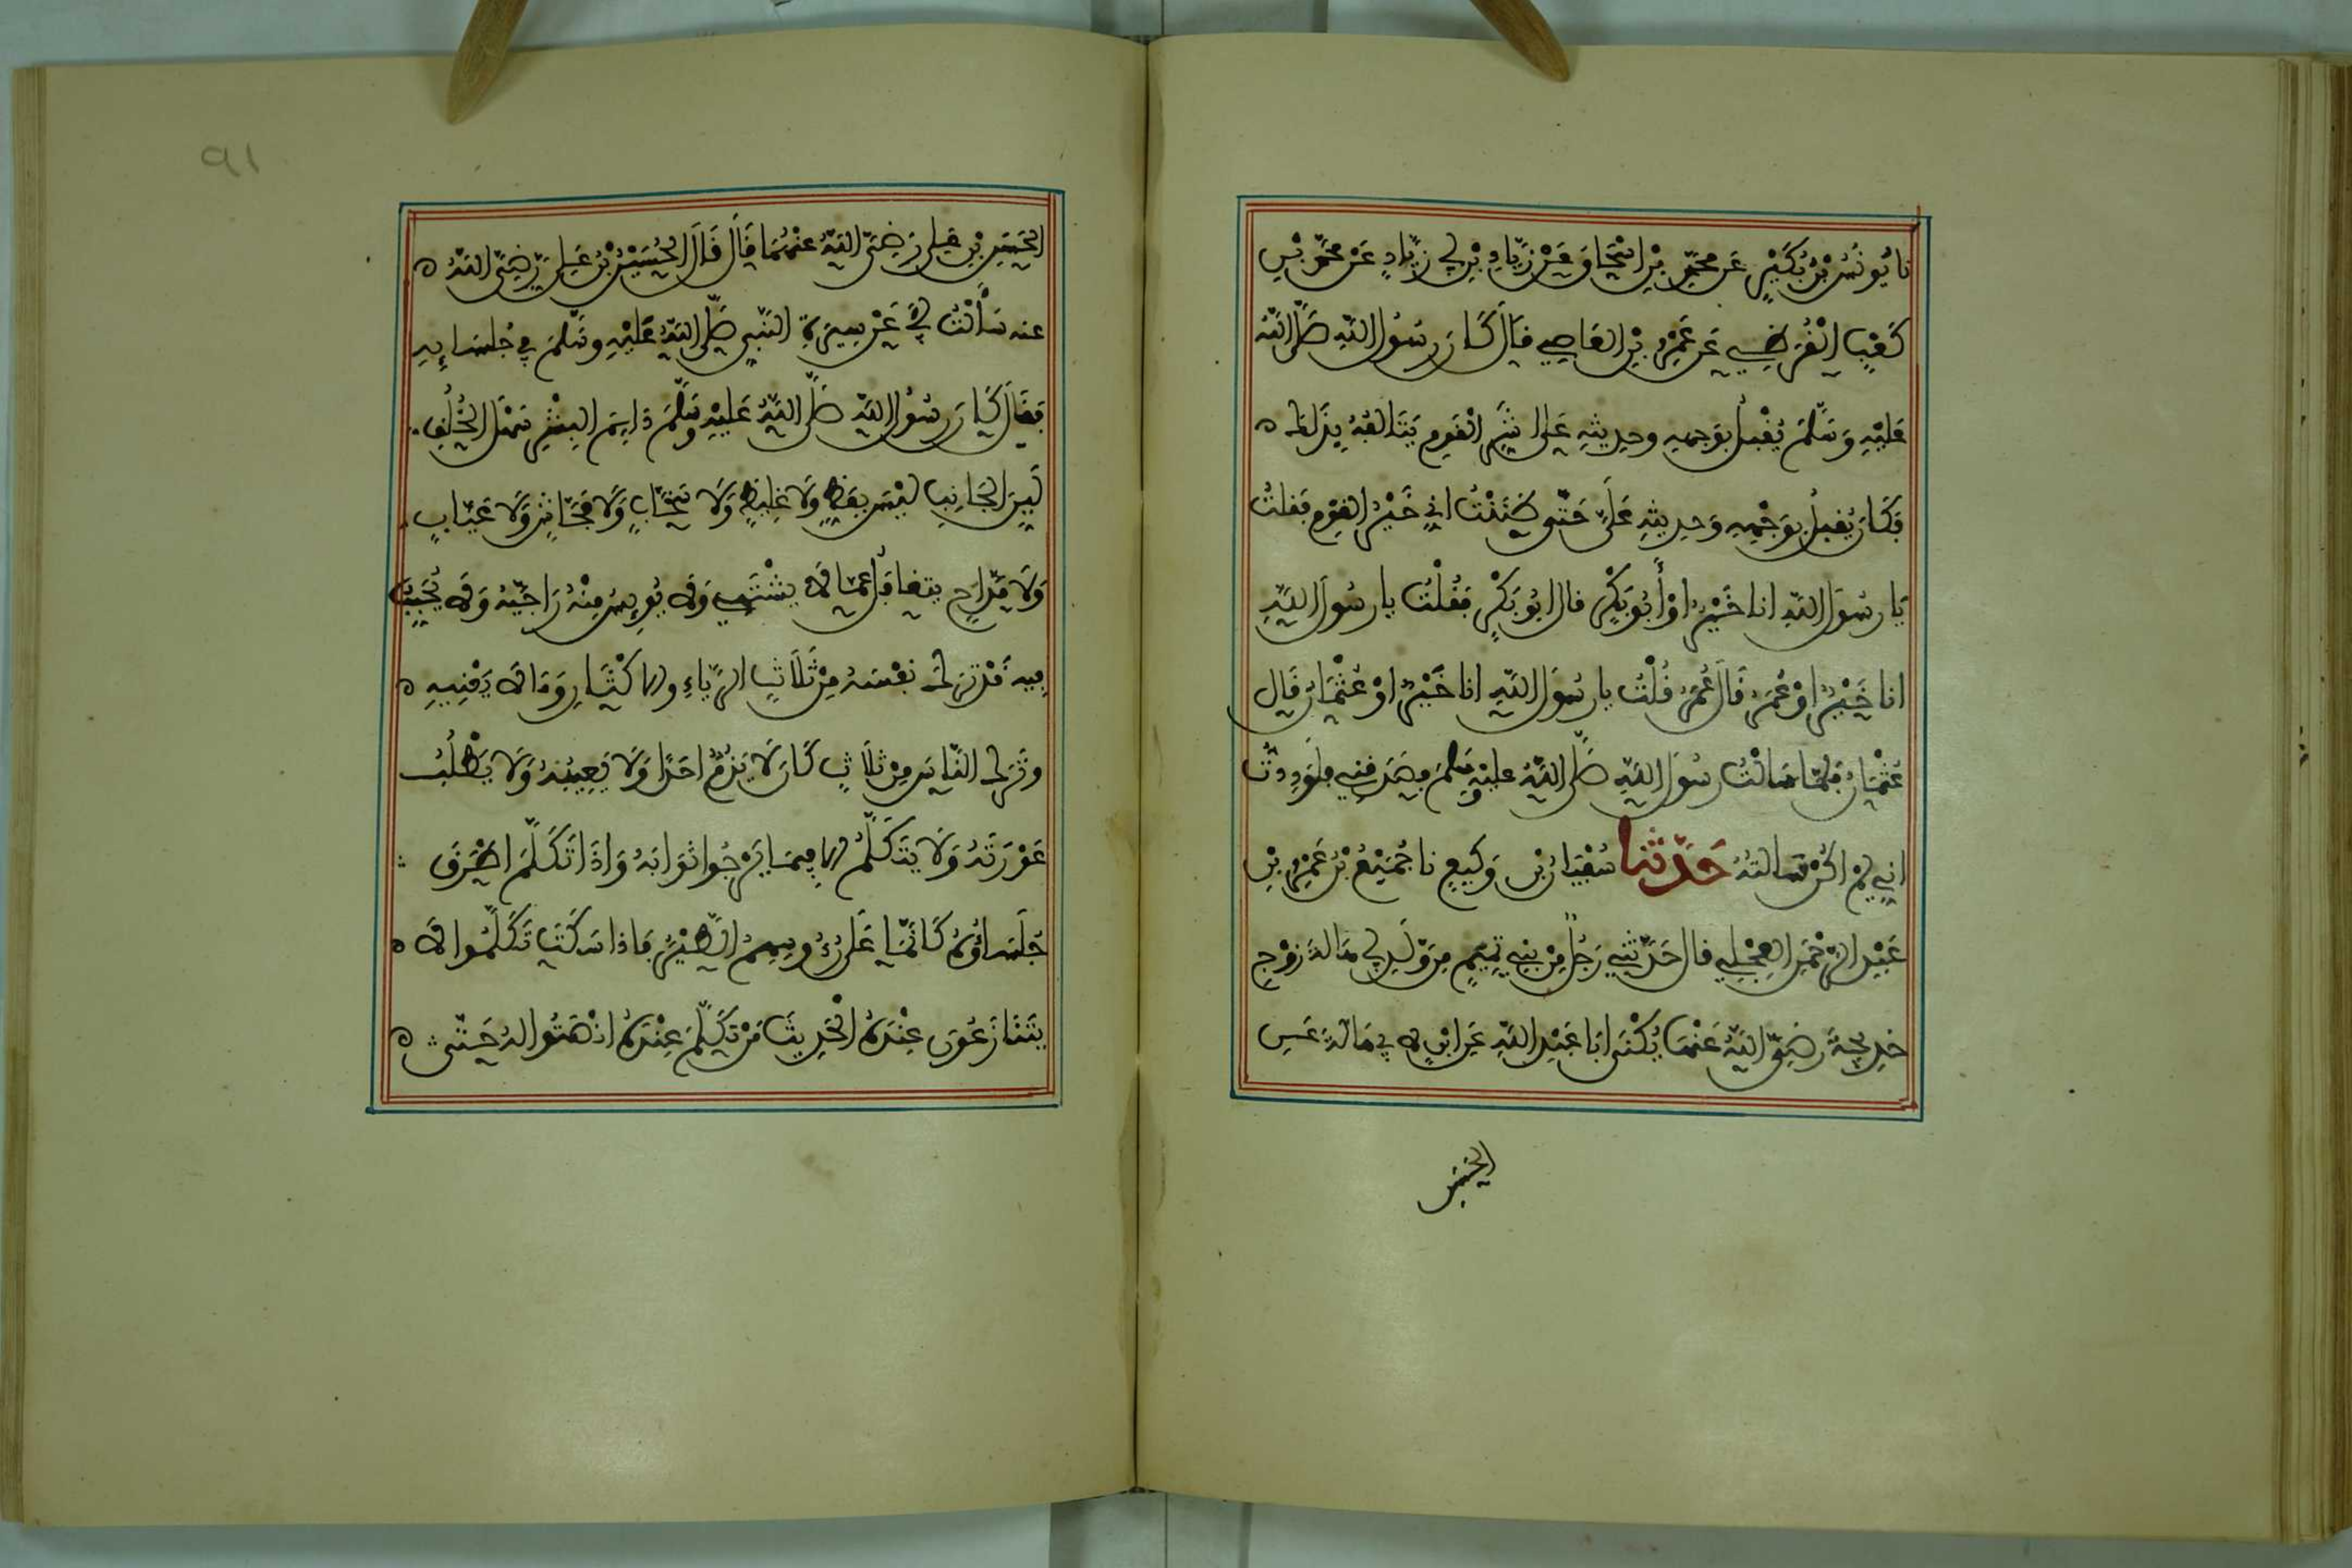 نا يُونُسُ بْنُ بُكَيْرٍ عَن محمّدِ بْنِ اسْحَاقَ عَنْ زِيَادِ بْنِ ابي زِيَادٍ عَنْ محمّدِ بْنِ
كَعْبٍ الْقُرَظِيِ عَن عَمْرِو بْنِ العَاصِي قَالَ كَانَ رسُولُ اللهِ صَلَّى اللهُ
عَلَيْهِ وَسَلَّمَ يُقْبِلُ بِوَجهِهِ وحدِيثِهِ عَلَى اشَرِّ الْقَومِ يَتَالَفُهُ بِذَلكَ
فَكَانَ يُقْبِلُ بِوَجْهِهِ وَحدِيثِهِ عَلَيَّ حَتَّى ظَنَنْتُ اني خَيْرُ القَوْمِ فَقلتُ
يَا رسُولَ اللهِ انا خَيْرٌ اوْ أَبُو بَكْرٍ قال ابُو بَكْرٍ فَقُلْتُ يا رسُولَ اللهِ
انا خَيْرٌ اوْ عُمَرُ قَالَ عُمَرُ قُلْتُ يا رسُولَ اللهِ انا خَيْرٌ اوْ عُثْمَانُ قَالَ
عُثْمَانُ فَلمَّا سَالْتُ رسُولَ اللهِ صَلَّى اللهُ عليْهِ وَسلمَ فصَدقنِي فلوَدِدتُ
انِي لمْ اكُنْ سَالتهُ حَدَّثنا سُفْيَانُ بْنُ وَكِيعٍ نا جُمَيْعُ بْنُ عُمَرَ بْنِ
عَبْدِ الرَّحْمَنِ العِجْلِي قال حَدَّثنِي رَجُلٌ مِنْ بَنِي تمِيمٍ مِن وَلَدِ ابي هَالةَ زَوْجِ
خدِيجَةَ رَضِيَ اللهُ عَنْها يُكْنَى ابَا عَبْدِ اللهِ عَنِ ابْنٍ لابِي هَالةَ عَنِ
الحَسَنِ
٩١
الحَسَنِ بْنِ عَلِي رَضِيَ اللهُ عنْهُمَا قَالَ قَالَ الحُسَيْنُ بْنُ عَلِي رَضِيَ اللهُ
عنه سَأَلْتُ ابي عَنْ سِيرَةِ النَّبِي صَلَّى اللهُ عَلَيْهِ وسَلَّمَ في جُلسَايِهِ
فقَالَ كَانَ رسُولُ اللهِ صَلَّى اللهُ عَلَيْهِ وسَلَّمَ دَايمَ البِشْرِ سَهْلَ الخُلُقِ
لَيِّنَ الجَانِبِ ليْسَ بِفَظٍّ وَلَا غَلِيظٍ وَلَا سَخَّابٍ وَلَا فَحَّاشٍ وَلَا عَيَّابٍ
وَلَا مَزَّاحٍ يتغَافَلُ عمَّا لا يشْتَهِي وَلا يُويِسُ مِنْهُ رَاجِيَهُ وَلا يُخَيَّبُ
فِيهِ قَدْ ترَكَ نفْسَهُ مِنْ ثَلَاثٍ الرِّيَاءِ والاكْثَارِ وَمَا لا يَعْنِيهِ
وتَرَكَ النَّاسَ مِن ثلَاثٍ كَانَ لَا يَذُمُّ احَدًا وَلَا يَعِيبُهُ وَلَا يَطْلُبُ
عَوْرَتَهُ وَلَا يتَكَلَّمُ الا فِيمَا يَرْجُوا ثوَابَهُ وَاذَا تَكَلَّمَ اطْرَقَ
جُلَسَاؤُهُ كَانَّمَا عَلَى رُءُوسِهِمُ الطَّيْرُ فَاذا سَكَتَ تَكَلَّمُوا لا
يتَنَازَعُونَ عِنْدَهُ الْحَدِيثَ مَنْ تَكَلَّمَ عِنْدَهُ انْصَتُوا لهُ حَتَّى